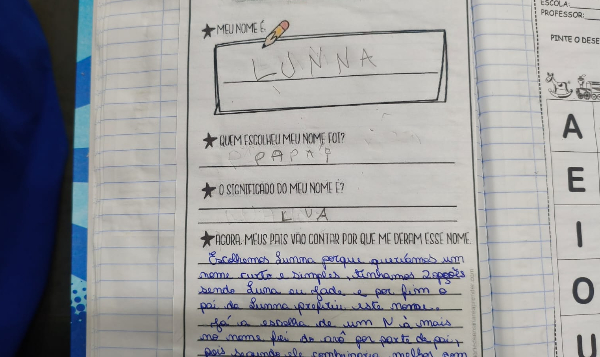 MEU NOME É
LUNNA
QUEM ESCOLHEU MEU NOME FOI?
PAPAI
O SIGNIFICADO DO MEU NOME É?
LUA
AGORA, MEUS PAIS VÃO CONTAR POR QUE ME DERAM ESSE NOME.
Escolhemos Lunna porque queríamos um
nome curto e simples, tinhamos 2 opções
sendo Luna ou Jade e por fim o
pai da Lunna preferiu este nome.
Já a escolha de um N à mais
no nome foi do avô por parte de pai,
pois segundo ele combinaria melhor com
ESCOLA:
PROFESSOR:
PINTE O DESE
A
E
I
O
U